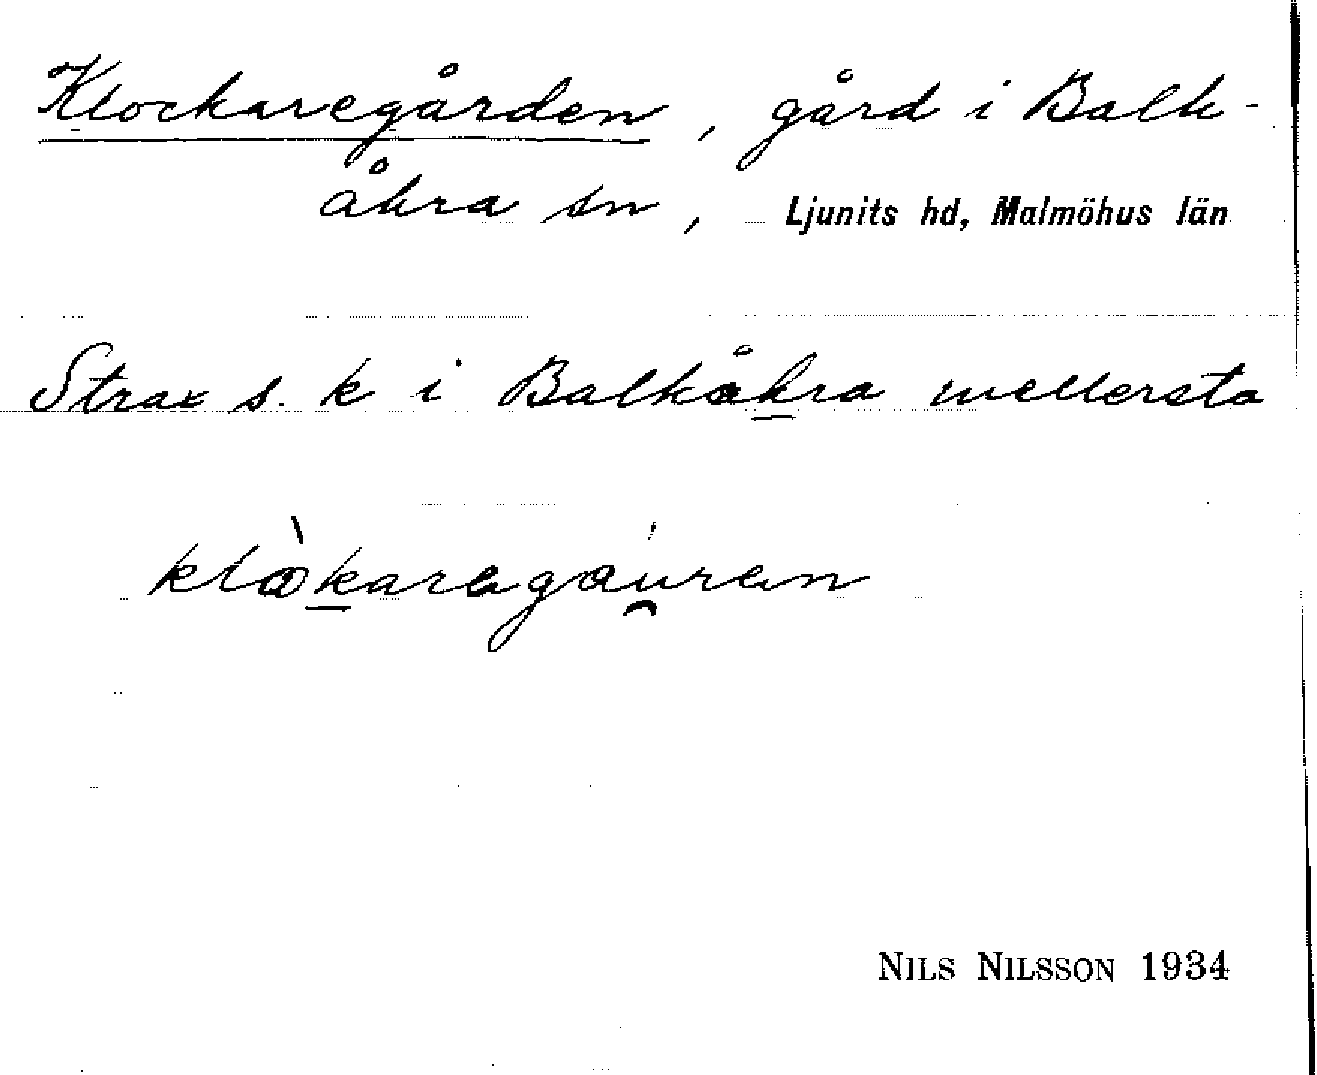 Klockaregården, gård i Balk-
åkra sn, Ljunits hd, Malmöhus län
Strax s. k i Balkåkra mellersta
NILS NILSSON 1934